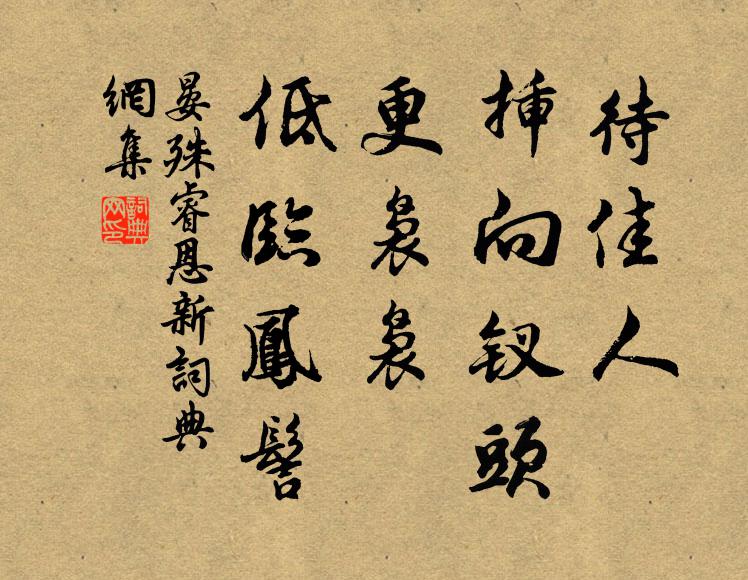 待佳人
挿向钗頭
更裊裊
低臨鳳髻
晏殊睿恩新詞典
網集
詞典
网印